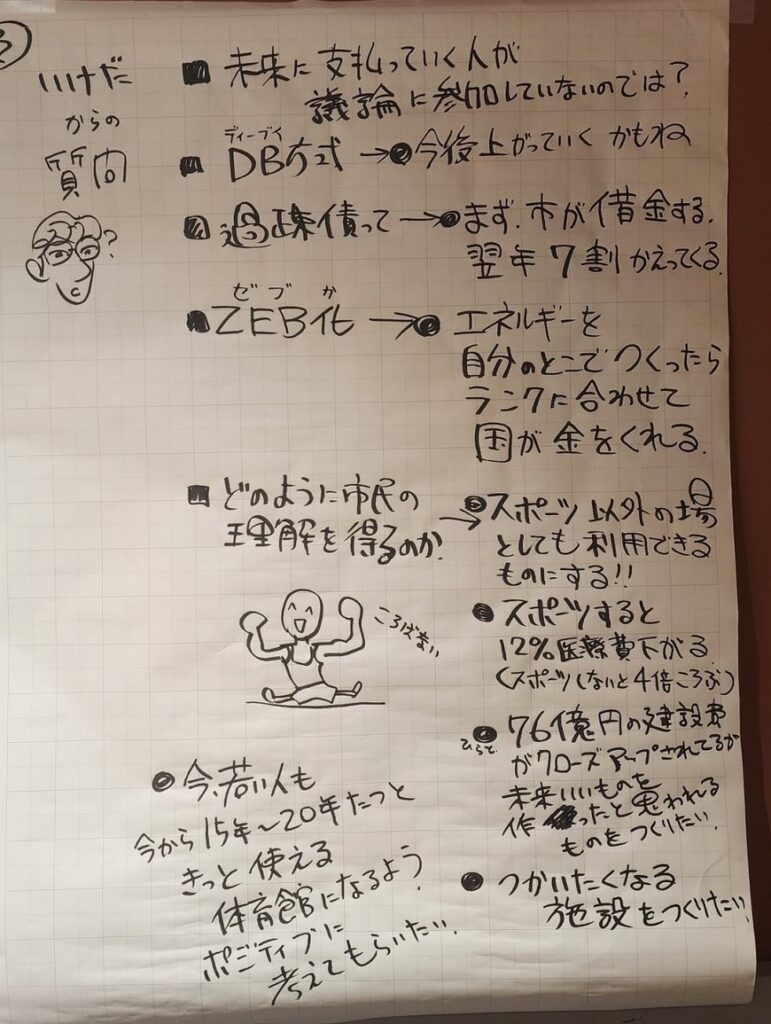 ②
いけだ
からの
質問
?
■ 未来に支払っていく人が
議論に参加していないのでは?
ディーブイ
■ DB方式 → ● 今後上がっていくかもね
■ 過疎債って → ● まず、市が借金する。
翌年7割かえってくる。
ゼブか
■ ZEB化 → ● エネルギーを
自分のとこでつくったら
ランクに合わせて
国が金をくれる。
■ どのように市民の
理解を得るのか。
→ ● スポーツ以外の場
としても利用できる
ものにする!!
● スポーツすると
12%医療費下がる
(スポーツしないと4倍ころぶ)
ころばない
● 76億円の建設費
ひらと
がクローズアップされてるが
未来いいものを
作ったと思われる
ものをつくりたい。
● つかいたくなる
施設をつくりたい。
● 今、若い人も
今から15年~20年たつと
きっと使える
体育館になるよう
ポジティブに
考えてもらいたい。